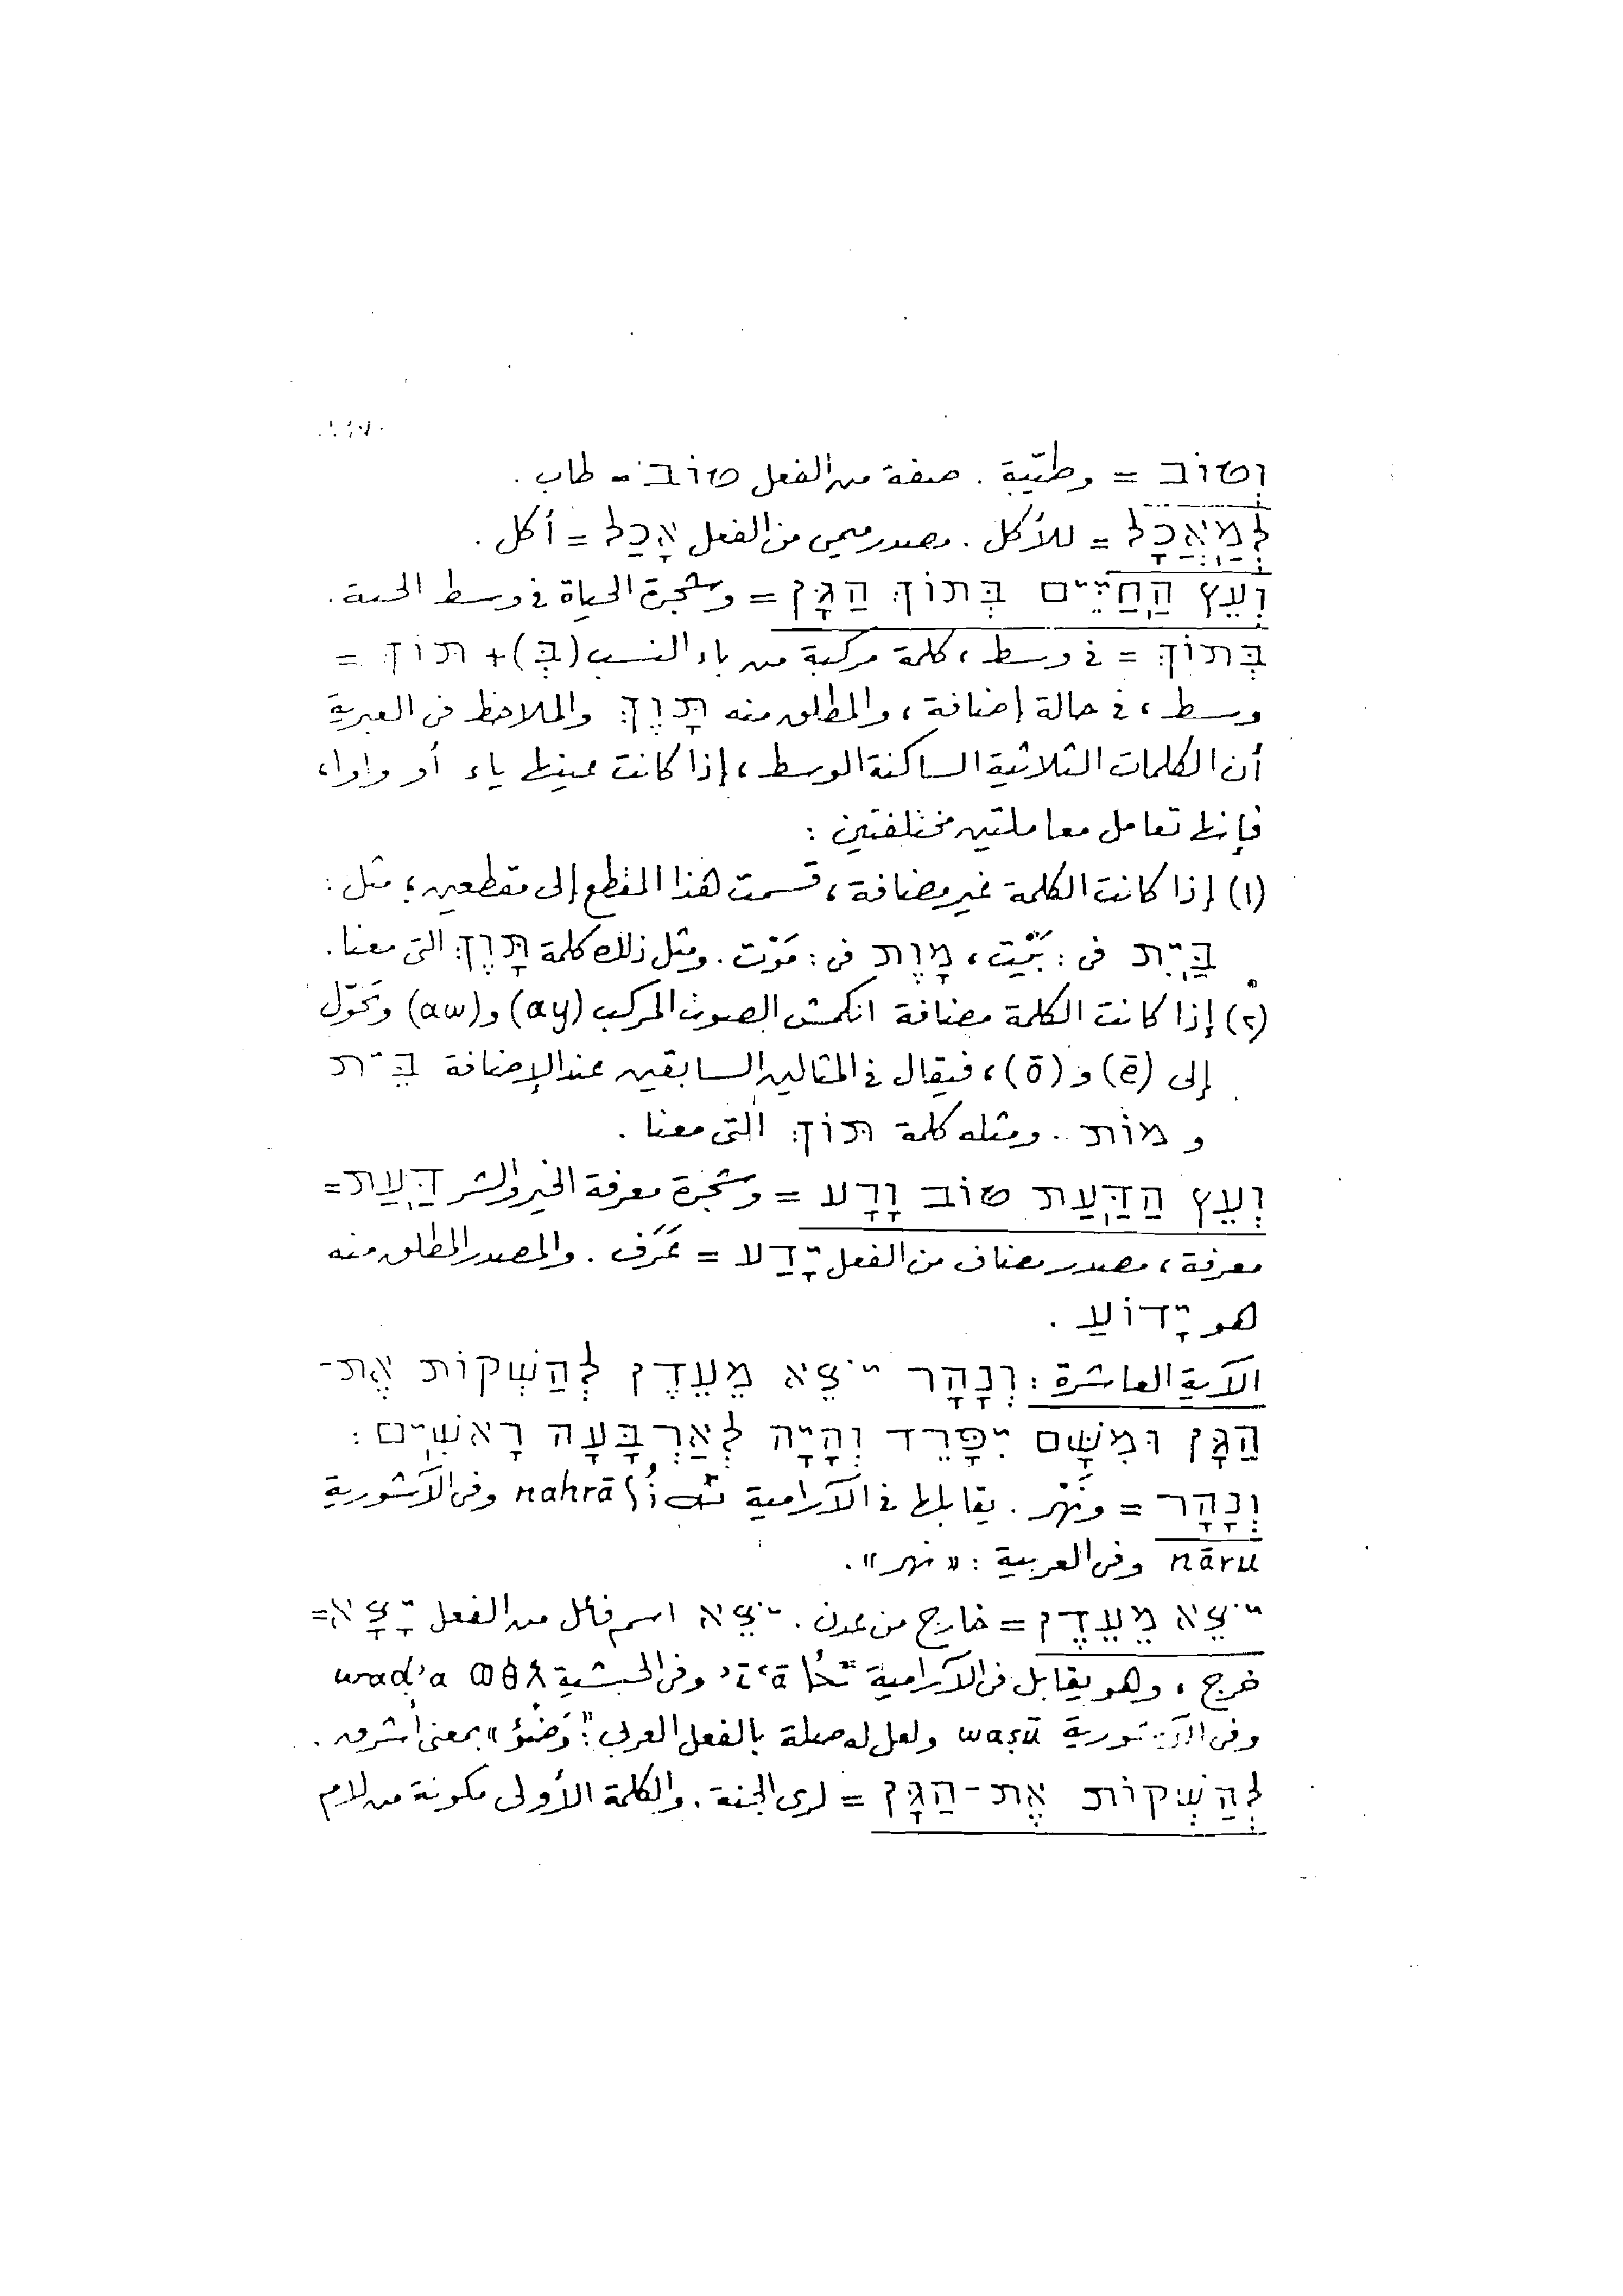 וְטוֹב = وطيّبة . صفة من الفعل טוֹב = طاب .
לְמַאֲכָל = للأكل . مصدر ميمى من الفعل אָכַל = أكل .
וְעֵץ הַחַיִּים בְּתוֹךְ הַגָּן = وشجرة الحياة فى وسط الجنة .
בְּתוֹךְ = فى وسط ، كلمة مركبة من باء النسب (בְּ) + תּוֹךְ =
وسط ، فى حالة إضافة ، والمطلق منه תָּוֶךְ والملاحظ فى العبرية
أن الكلمات الثلاثية الساكنة الوسط ، إذا كانت عينها ياء أو واوا ،
فإنها تعامل معاملتين مختلفتين :
(١) إذا كانت الكلمة غير مضافة ، قسمت هذا المقطع إلى مقطعين ؛ مثل :
בַּיִת فى : بَيْت ، מָוֶת فى : مَوْت . ومثل ذلك كلمة תָּוֶךְ التى معنا .
(٢) إذا كانت الكلمة مضافة انكمش الصوت المركب (ay) و (aw) وتحوّل
إلى (ē) و (ō) ، فيقال فى المثالين السابقين عند الإضافة בֵּית
و מוֹת . ومثله كلمة תּוֹךְ التى معنا .
וְעֵץ הַדַּעַת טוֹב וָרָע = وشجرة معرفة الخير والشر דַּעַת =
معرفة ، مصدر مضاف من الفعل יָדַע = عَرَف . والمصدر المطلق منه
هو יָדוֹעַ .
الآية العاشرة : וְנָהָר יֹצֵא מֵעֵדֶן לְהַשְׁקוֹת אֶת־
הַגָּן וּמִשָּׁם יִפָּרֵד וְהָיָה לְאַרְבָּעָה רָאשִׁים :
וְנָהָר = ونَهْر . يقابلها فى الآرامية ܢܗܪܐ nahrā وفى الآشورية
nāru وفى العربية : « نهر » .
יֹצֵא מֵעֵדֶן = خارج من عدن . יֹצֵא اسم فاعل من الفعل יָצָא =
خرج ، وهو يقابل فى الآرامية وفى الحبشية ወፅአ waḍ'a
وفى الآشورية waṣū ولعل له صلة بالفعل العربى : " وَضُؤ » بمعنى أشرق .
לְהַשְׁקוֹת אֶת־הַגָּן = لرى الجنة . والكلمة الأولى مكونة من لام